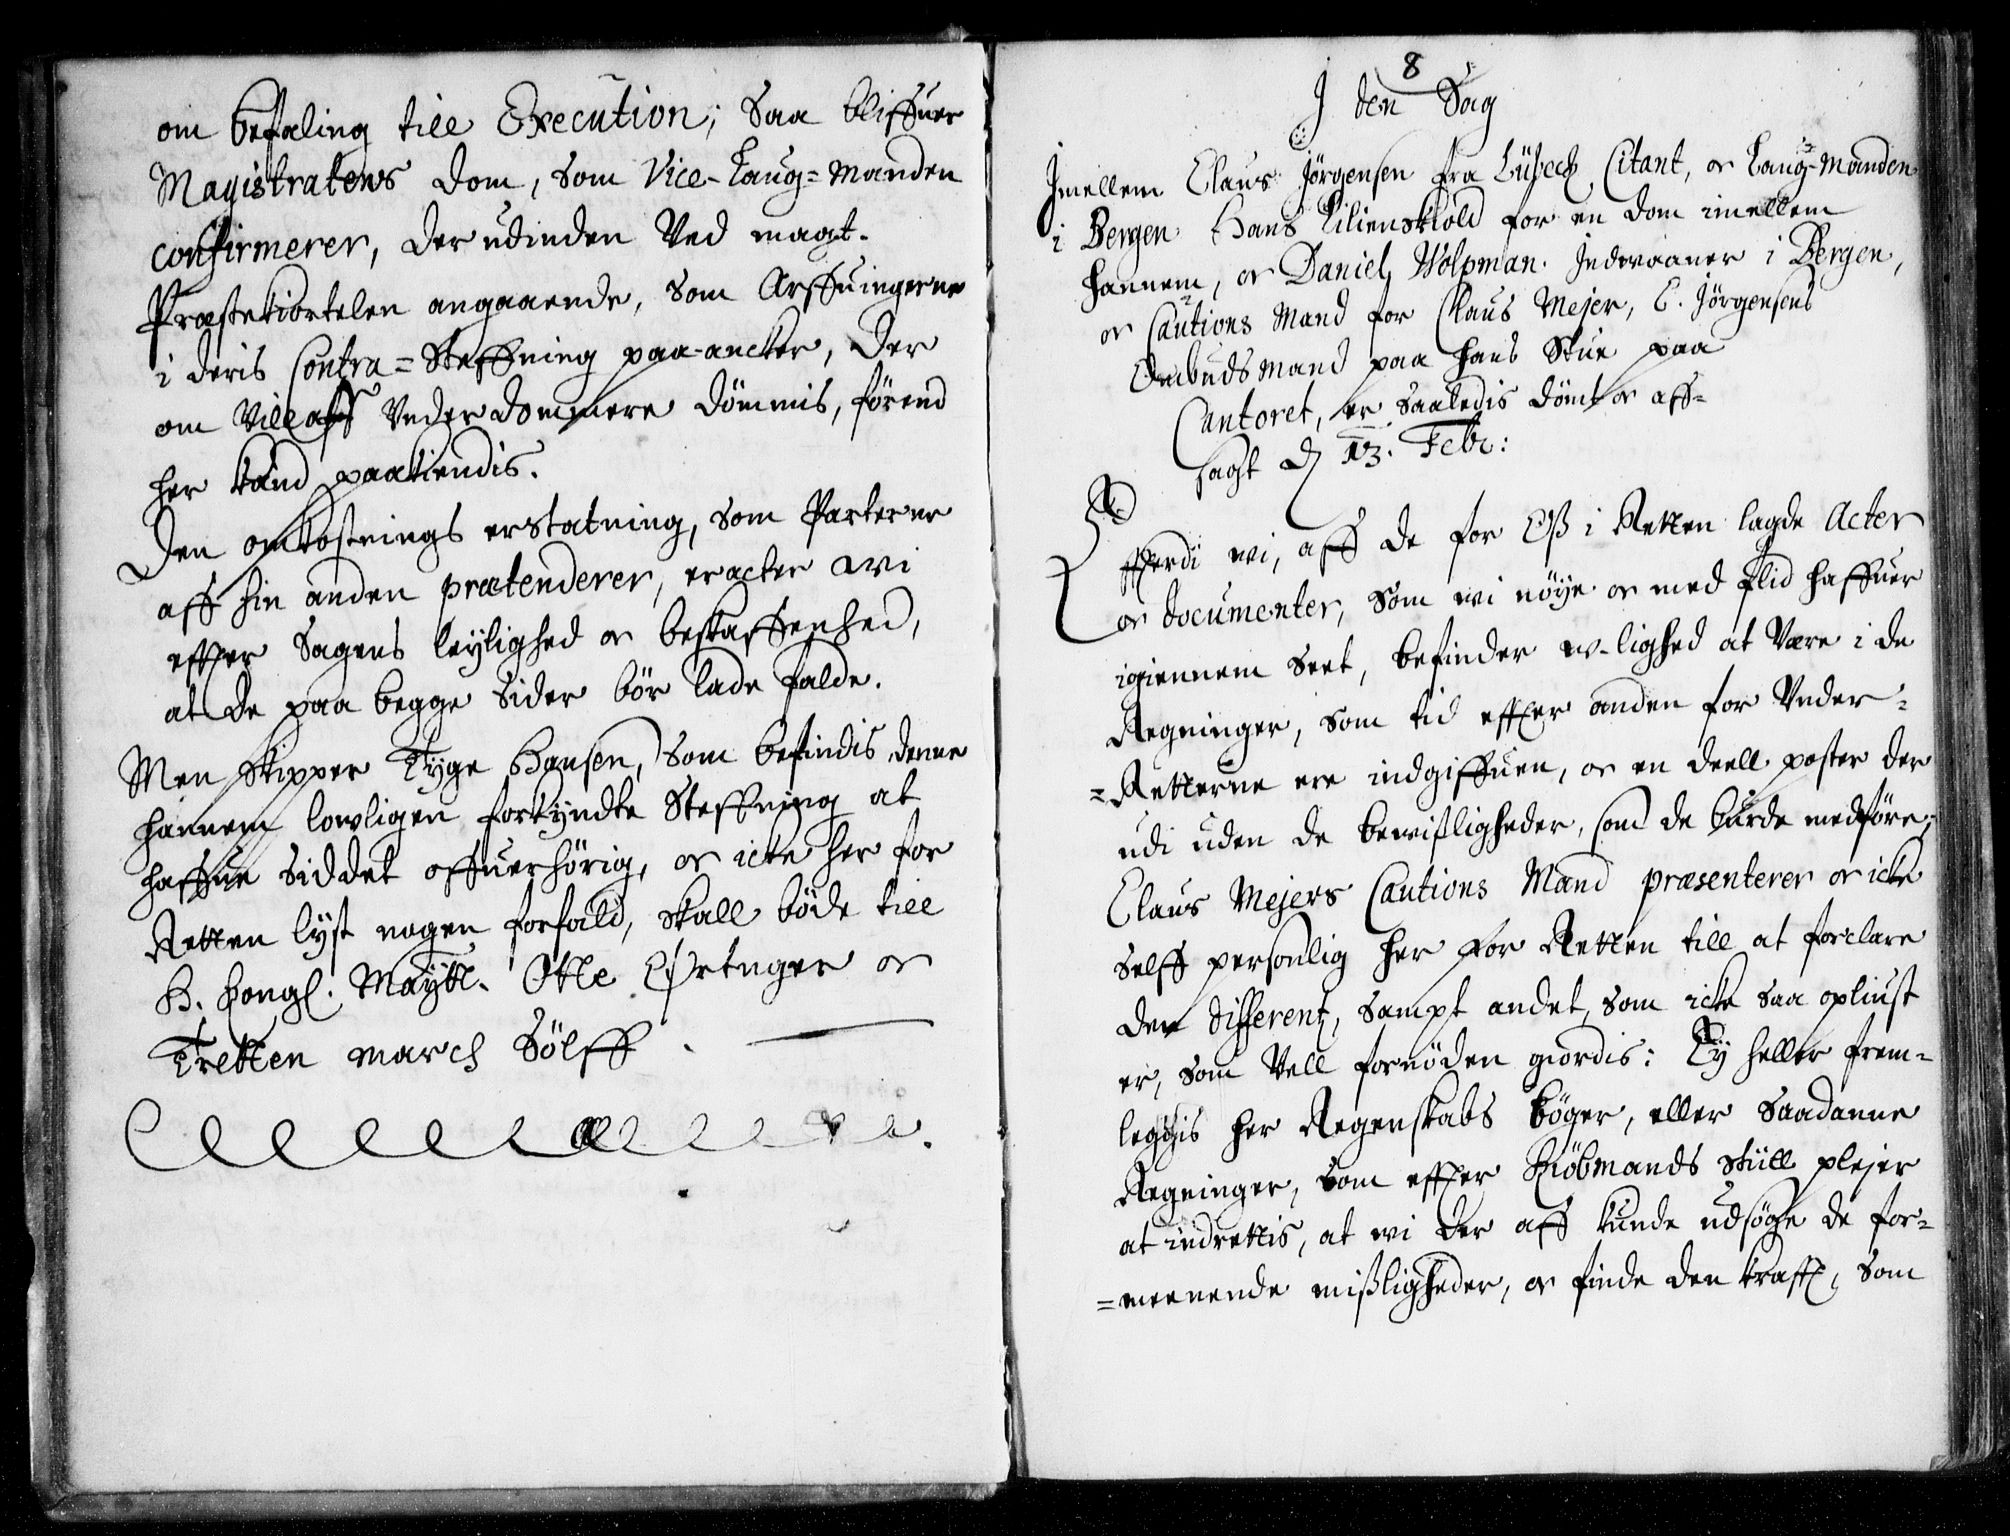 om befaling till Execution; Saa bliffuer
Magistratens dom, som Vice-Laug=Manden
confirmerer, der udinden Ved magt.
Præstekiortelen angaaende, som Arffuingerne
i deris Contra=Steffning paa-ancker, der
om Vill aff Underdommere dömmis, förend
her kand paakiendis.
Den omkostnings erstatning, som Parterne
aff hin anden prætenderer, eracter wi
effter Sagens leylighed oc beskaffenhed,
at de paa begge sider bör lade falde.
Men Skipper Tyge Hansen, som befindis denne
hannem lovligen forkyndte Steffning at
haffue siddet offuerhörig, oc icke her for
Retten lyst nogen forfald, skall böde till
H. Kongl. Maytt. Otte Örtuger oc
Tretten march Sölff.
8
I den Sag
Imellem Claus Jörgensen fra Lübeck Citant, oc Laug-Manden
i Bergen Hans Lilienskiold for en dom imellem
hannem, oc Daniel Wolpman Indvaaner i Bergen,
oc Cautions Mand for Claus Mejer, C. Jörgensens
Ombudsmand paa hans Stue paa
Cantoret, er Saaledis dömt oc aff=
sagt d 13. Febr:
Efterdi wi, aff de for Oß i Retten lagde Acter
oc documenter, som wi nöye oc med flid haffuer
igiennem Seet, befinder w-lighed at Være i de
Regninger, som tid effter anden for Under=
=Retterne ere indgiffuen, oc en deell poster der
udi uden de bewisligheder, som de burde medföre,
Claus Mejers Cautions Mand præsenterer oc icke
Selff personlig her for Retten till at forclare
den different, sampt andet, som icke saa opliust
er, som Vell fornöden giordis: Ey heller frem=
leggis her Regenskabs böger, eller saadanne
Regninger, som effter Kiöbmands Stiill plejer
at indrettis, at wi der aff kunde udsöge de for=
=meenende mißligheder, oc finde den krafft, som